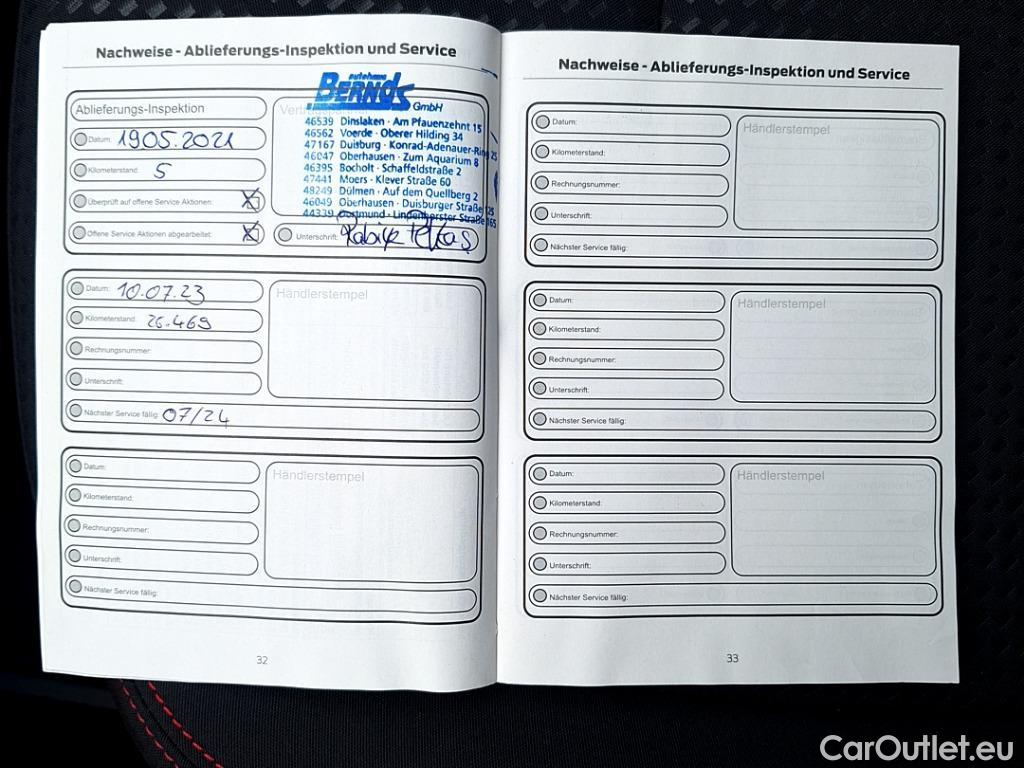 Nachweise - Ablieferungs-Inspektion und Service
Ablieferungs-Inspektion
Datum: 19.05.2021
Kilometerstand: 5
Überprüft auf offene Service Aktionen: X
Offene Service Aktionen abgearbeitet: X
autohaus
BERNDS GmbH
46539 Dinslaken · Am Pfauenzehnt 15
46562 Voerde · Oberer Hilding 34
47167 Duisburg · Konrad-Adenauer-Ring 25
46047 Oberhausen · Zum Aquarium 8
46395 Bocholt · Schaffeldstraße 2
47441 Moers · Klever Straße 60
48249 Dülmen · Auf dem Quellberg 2
46049 Oberhausen · Duisburger Straße 125
44339 Dortmund · Lindenhorster Straße 165
Unterschrift:
Datum: 10.07.23
Kilometerstand: 26.469
Rechnungsnummer:
Unterschrift:
Nächster Service fällig: 07/24
Händlerstempel
Datum:
Kilometerstand:
Rechnungsnummer:
Unterschrift:
Nächster Service fällig:
Händlerstempel
32
Nachweise - Ablieferungs-Inspektion und Service
Datum:
Kilometerstand:
Rechnungsnummer:
Unterschrift:
Nächster Service fällig:
Händlerstempel
Datum:
Kilometerstand:
Rechnungsnummer:
Unterschrift:
Nächster Service fällig:
Händlerstempel
Datum:
Kilometerstand:
Rechnungsnummer:
Unterschrift:
Nächster Service fällig:
Händlerstempel
33
CarOutlet.eu